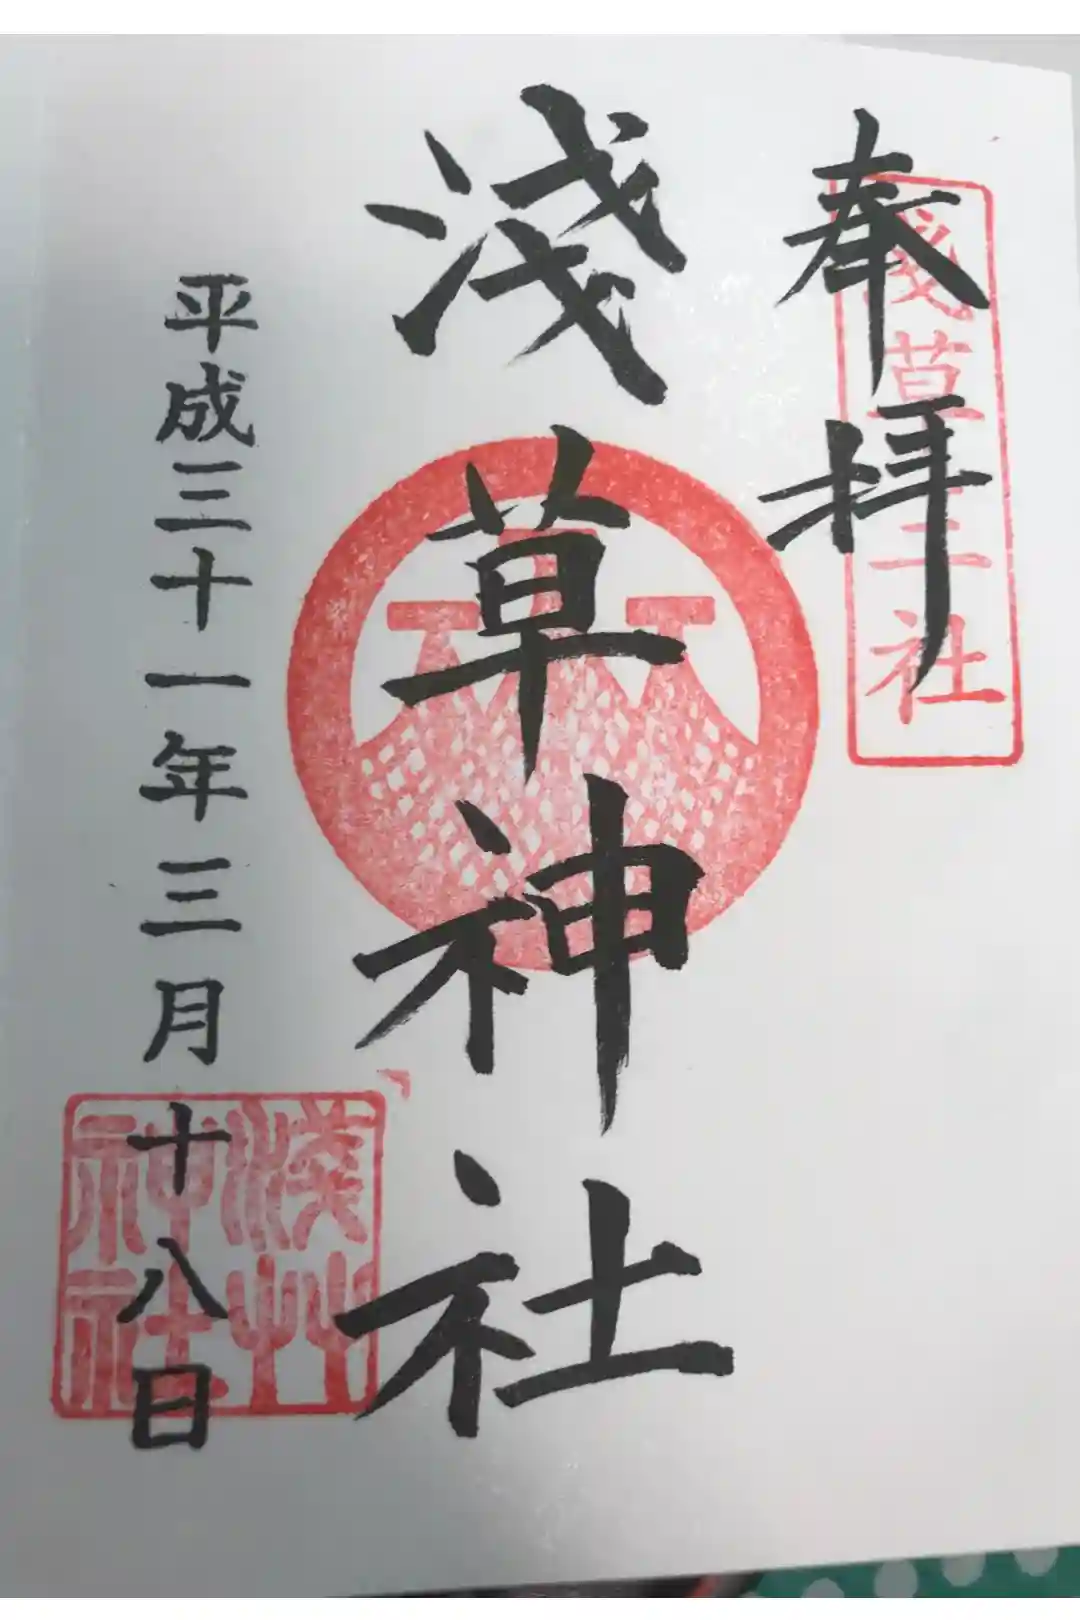 奉拝
淺草三社
淺草神社
平成三十一年三月十八日
淺艸
神社